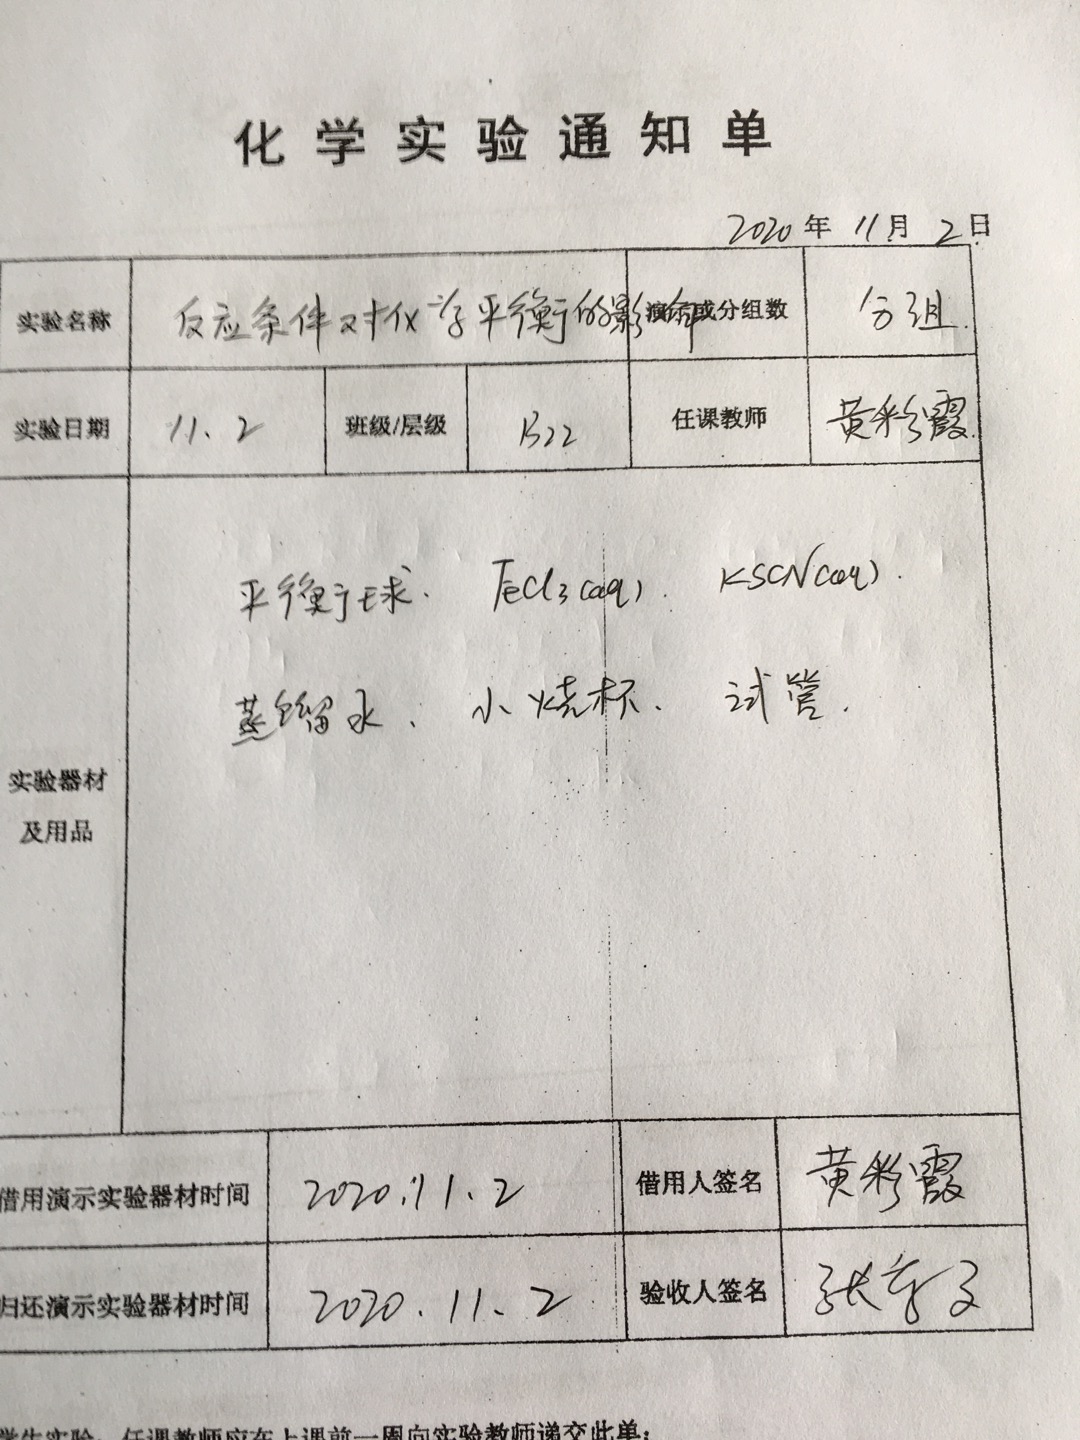 化学实验通知单
2020年 11月 2日
实验名称 反应条件对化学平衡的影响 演示或分组数 分组
实验日期 11.2 班级/层级 B22 任课教师 黄彩霞
平衡球. FeCl3(aq). KSCN(aq).
蒸馏水. 小烧杯. 试管.
实验器材
及用品
借用演示实验器材时间 2020.11.2 借用人签名 黄彩霞
归还演示实验器材时间 2020.11.2 验收人签名 张
学生实验,任课教师应在上课前一周向实验教师递交此单;